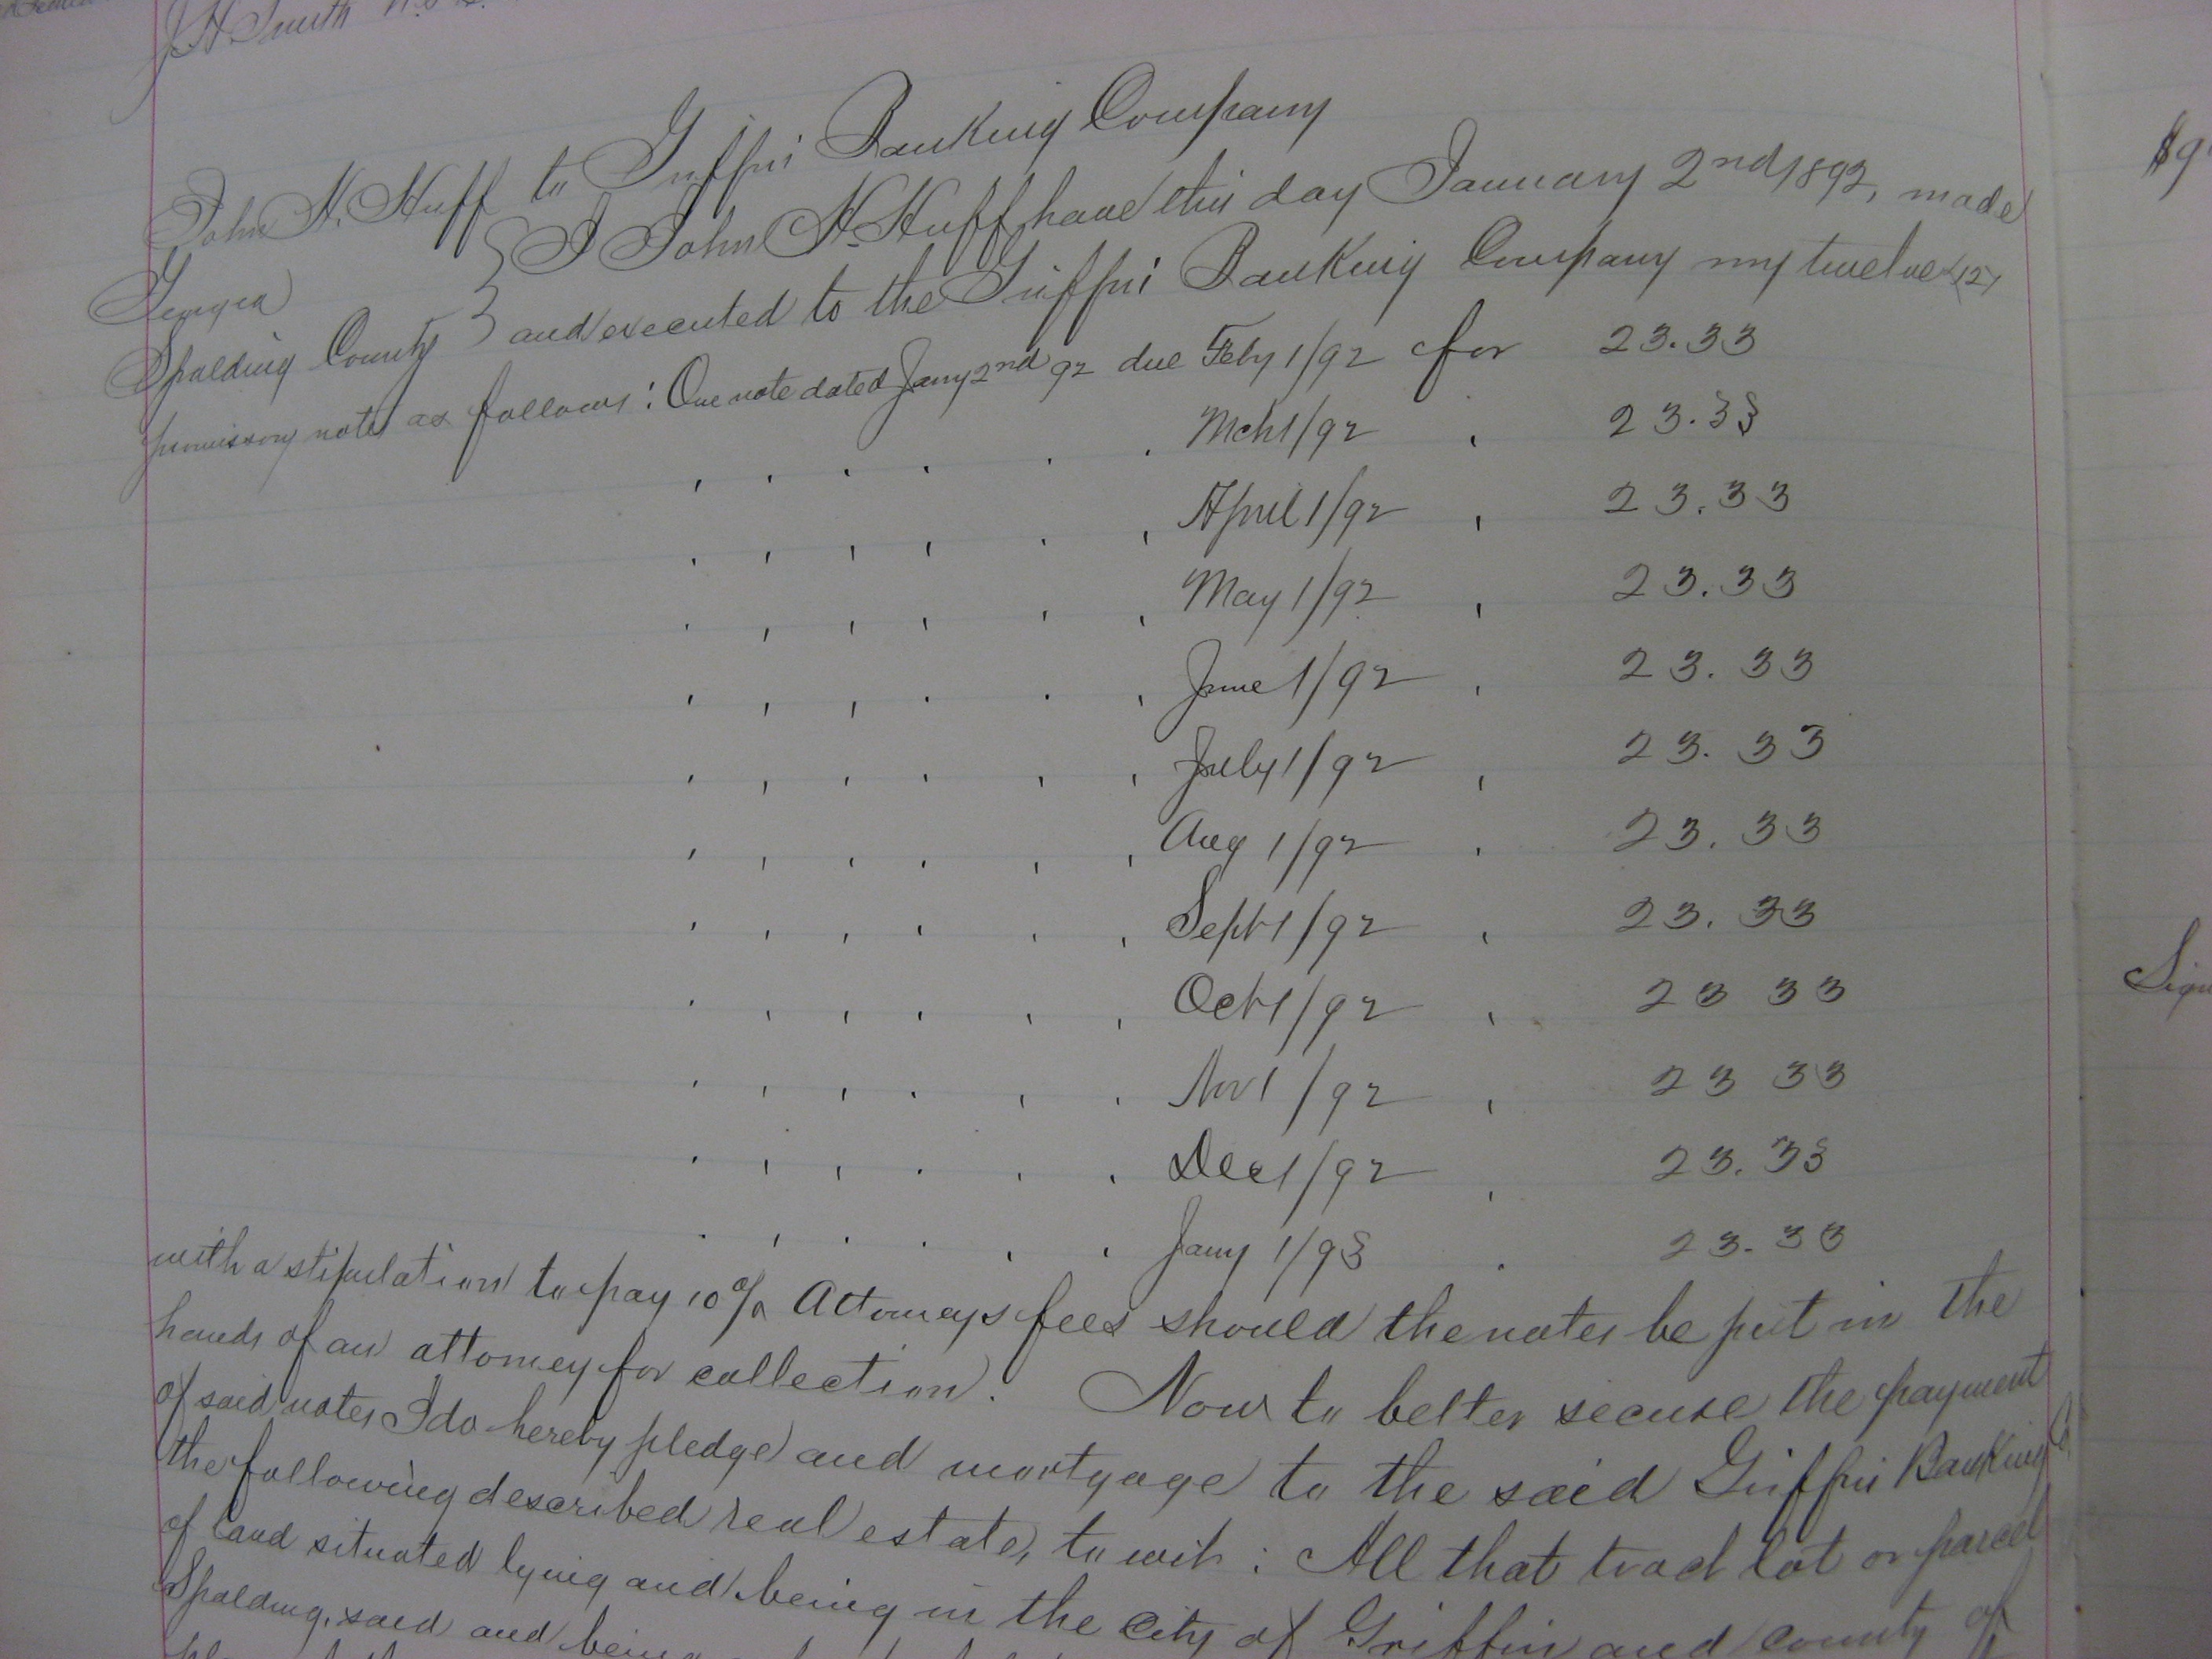 J H Smith N.P.
John H. Huff to Griffin Banking Company
Georgia } I John H. Huff, have this day January 2nd 1892, made
Spalding County } and executed to the Griffin Banking Company my twelve (12)
promissory notes as follows: One note dated Jany 2nd 92 due Feby 1/92 for 23.33
" " " " " " Mch 1/92 " 23.33
" " " " " " April 1/92 " 23.33
" " " " " " May 1/92 " 23.33
" " " " " " June 1/92 " 23.33
" " " " " " July 1/92 " 23.33
" " " " " " Aug 1/92 " 23.33
" " " " " " Sept 1/92 " 23.33
" " " " " " Oct 1/92 " 23 33
" " " " " " Nov 1/92 " 23 33
" " " " " " Dec 1/92 " 23.33
" " " " " " Jany 1/93 " 23.33
with a stipulation to pay 10% Attorneys fees should the notes be put in the
hands of an attorney for collection. Now to better secure the payment
of said notes I do hereby pledge and mortgage to the said Griffin Banking Co
the following described real estate, to wit: All that tract lot or parcel
of land situated lying and being in the City of Griffin and county of
Spalding, said and being
$9